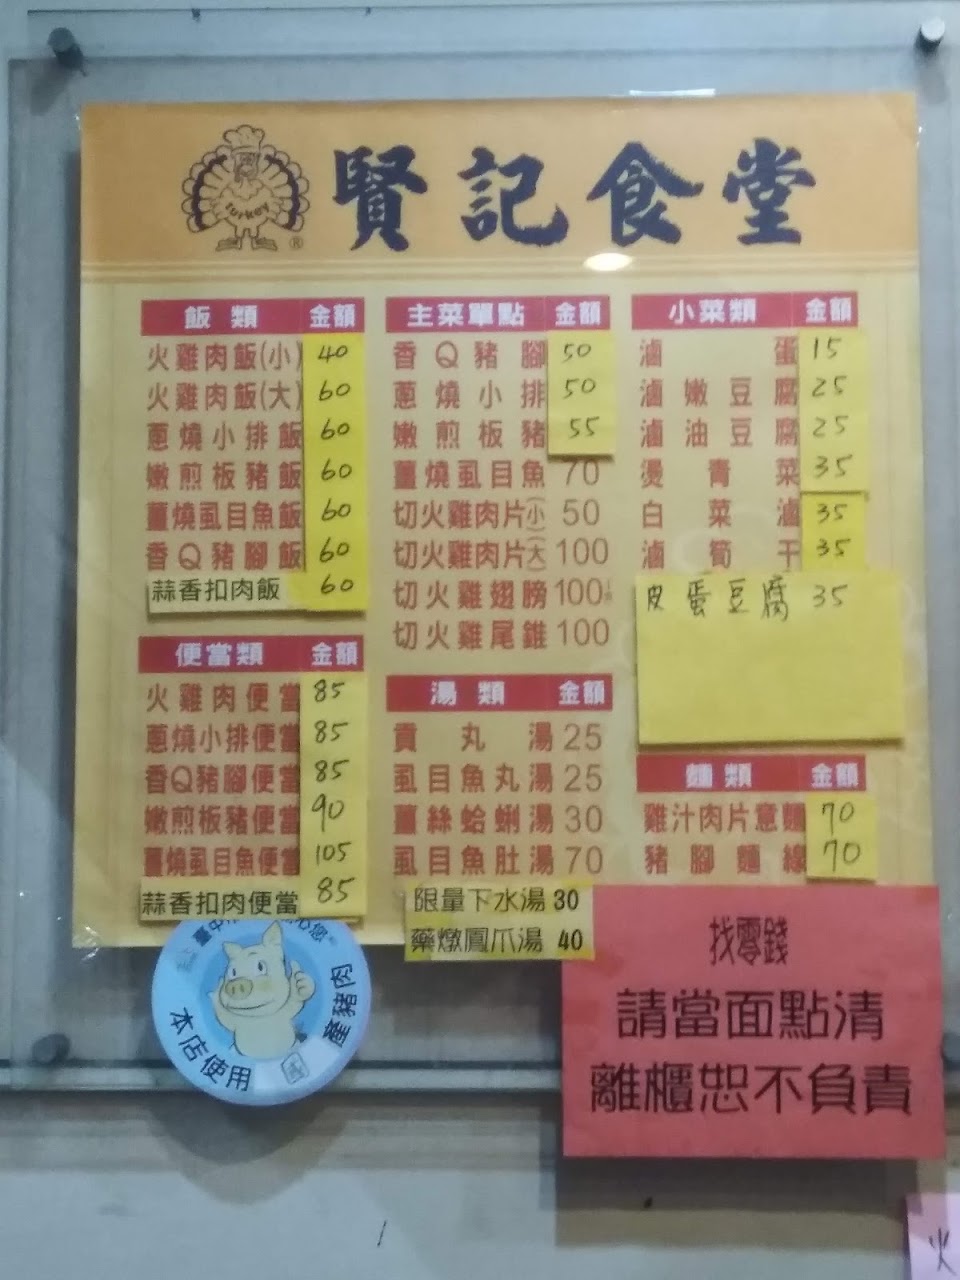 turkey
®
賢記食堂
飯類 金額
火雞肉飯(小) 40
火雞肉飯(大) 60
蔥燒小排飯 60
嫩煎板豬飯 60
薑燒虱目魚飯 60
香Q豬腳飯 60
蒜香扣肉飯 60
便當類 金額
火雞肉便當 85
蔥燒小排便當 85
香Q豬腳便當 85
嫩煎板豬便當 90
薑燒虱目魚便當 105
蒜香扣肉便當 85
主菜單點 金額
香Q豬腳 50
蔥燒小排 50
嫩煎板豬 55
薑燒虱目魚 70
切火雞肉片(小) 50
切火雞肉片(大) 100
切火雞翅膀 100
切火雞尾錐 100
湯類 金額
貢丸湯 25
虱目魚丸湯 25
薑絲蛤蜊湯 30
虱目魚肚湯 70
限量下水湯 30
藥燉鳳爪湯 40
小菜類 金額
滷蛋 15
滷嫩豆腐 25
滷油豆腐 25
燙青菜 35
白菜滷 35
滷筍干 35
皮蛋豆腐 35
麵類 金額
雞汁肉片意麵 70
豬腳麵線 70
找零錢
請當面點清
離櫃恕不負責
臺中
您
本店使用
國
產豬肉
火